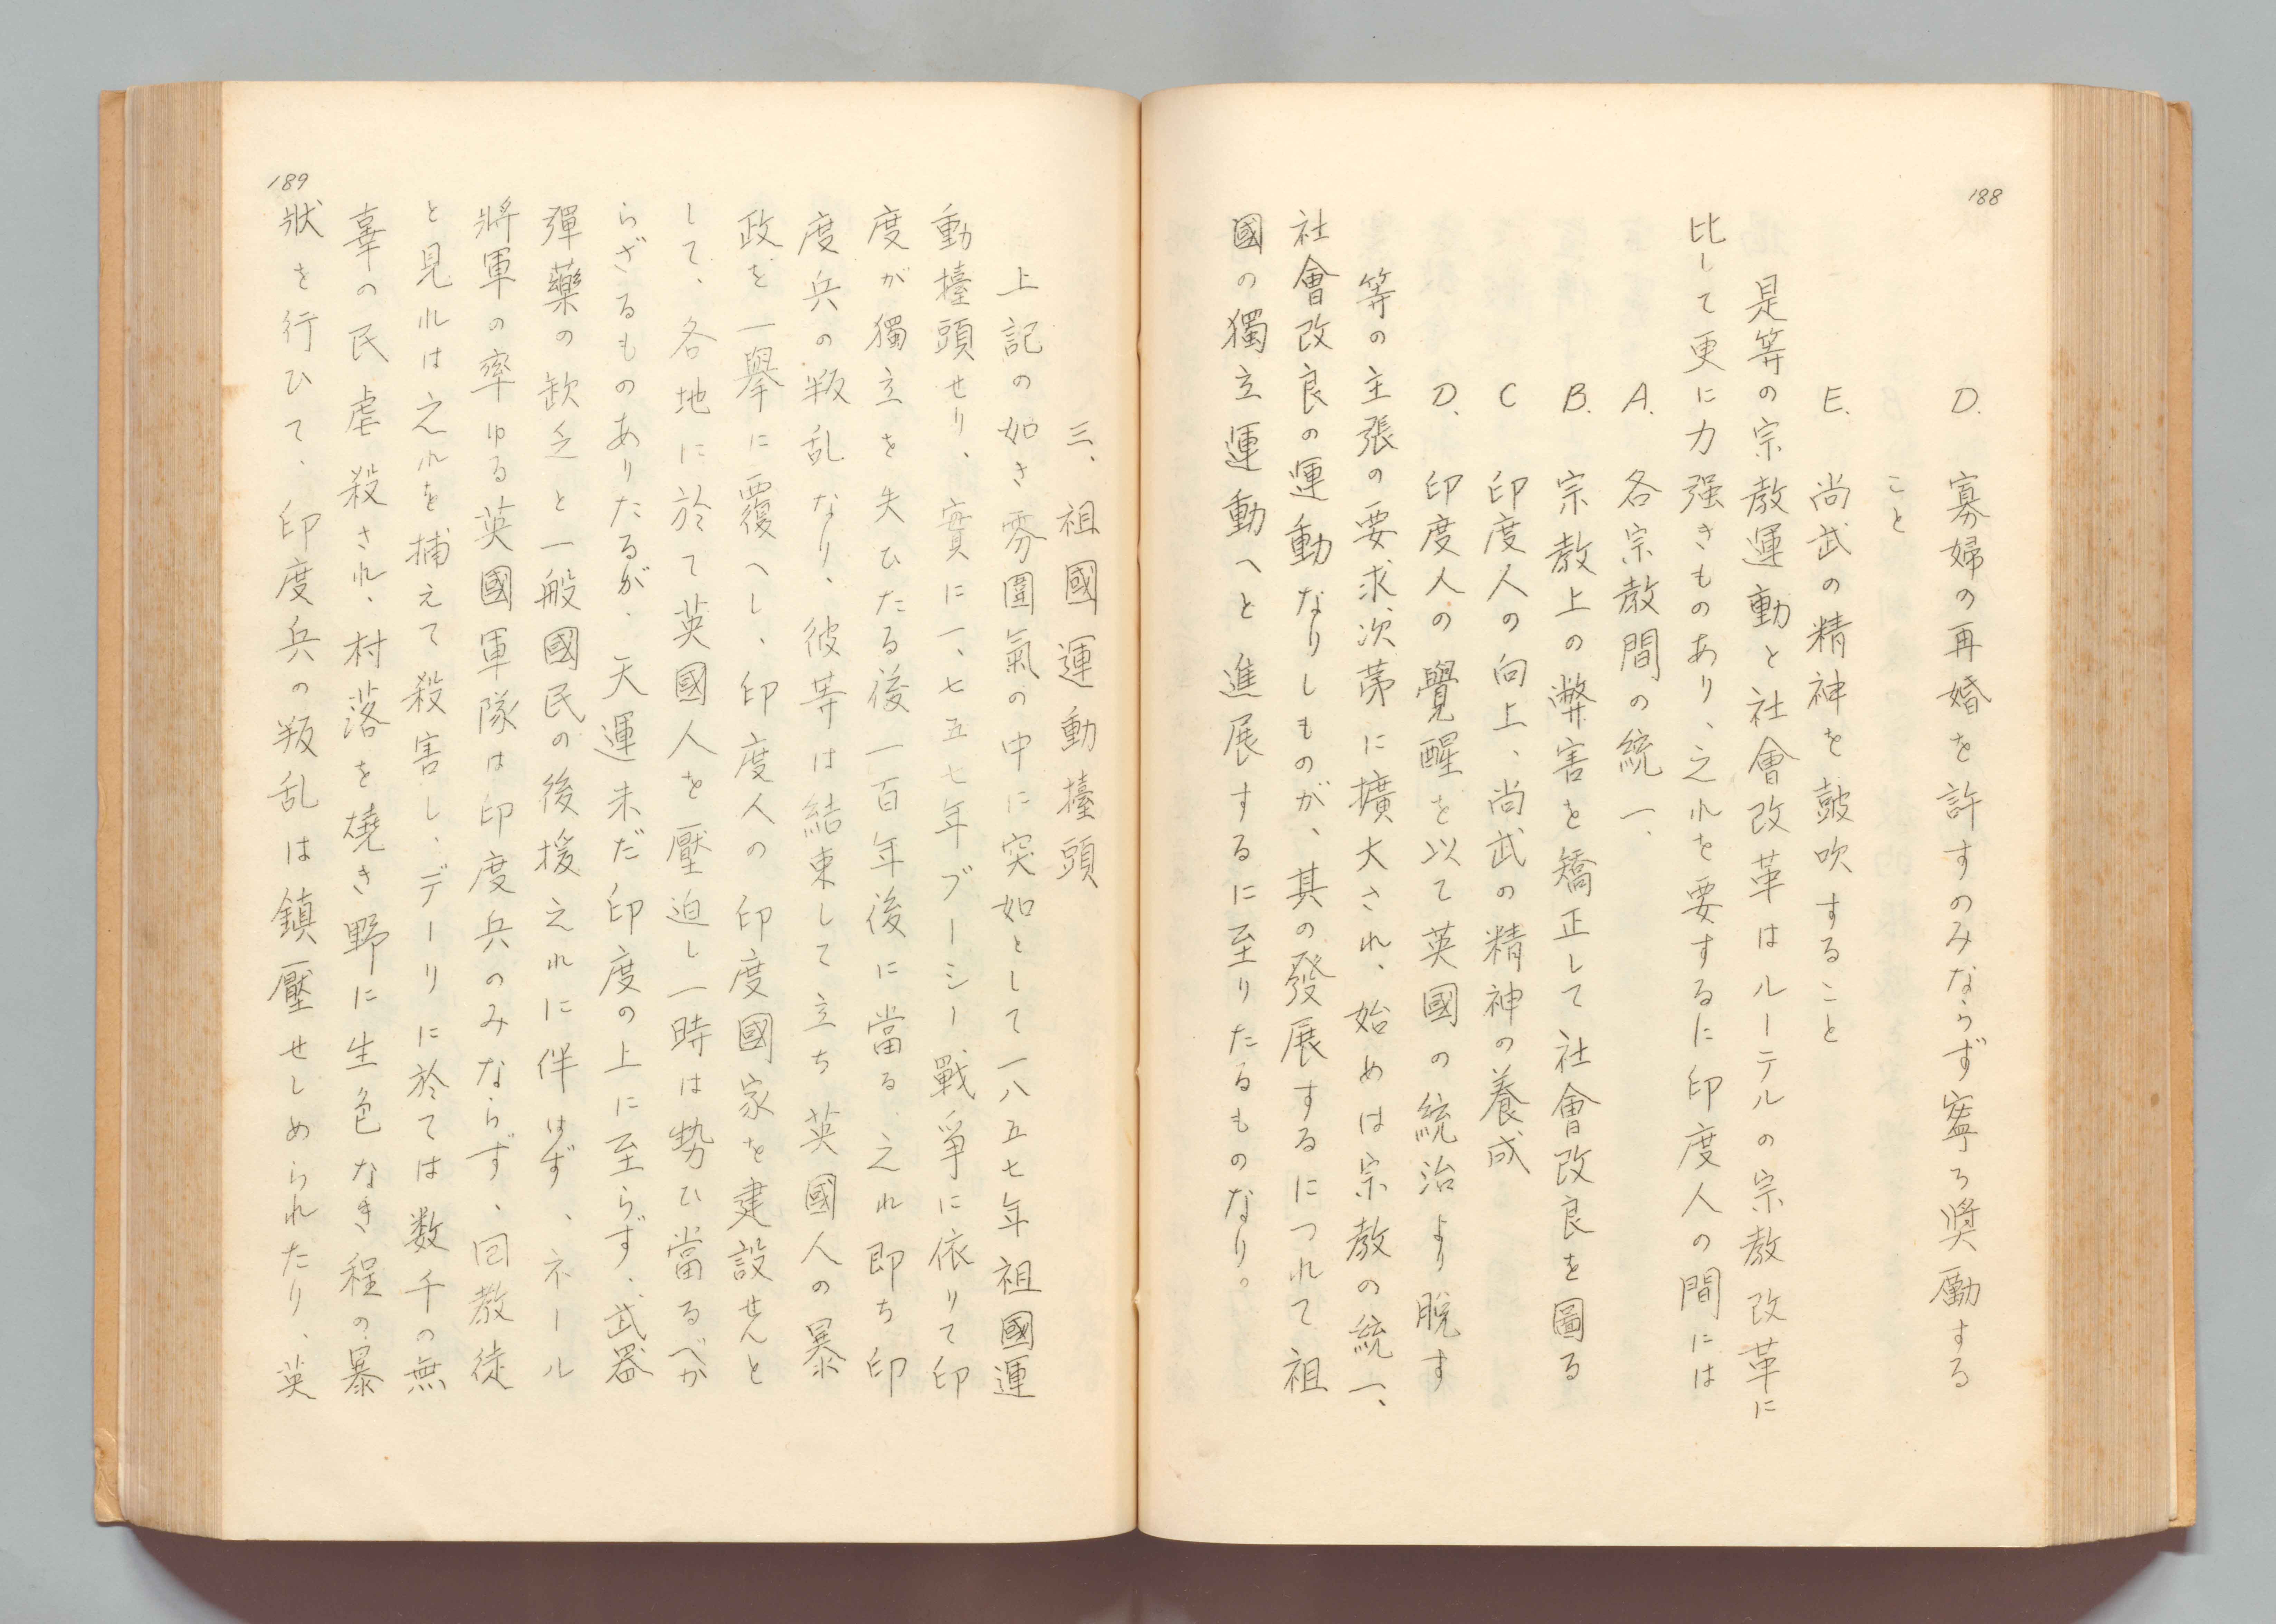 188
D. 寡婦の再婚を許すのみならず寧ろ奬勵する
こと
E. 尚武の精神を鼓吹すること
是等の宗教運動と社會改革はルーテルの宗教改革に
比して更に力强きものあり、之れを要するに印度人の間には
A. 各宗教間の統一、
B. 宗教上の弊害を矯正して社會改良を圖る
C 印度人の向上、尚武の精神の養成
D. 印度人の覺醒を以て英國の統治より脫す
等の主張の要求、次第に擴大され、始めは宗教の統一、
社會改良の運動なりしものが、其の發展するにつれて祖
國の獨立運動へと進展するに至りたるものなり。
三、祖國運動擡頭
上記の如き雰圍氣の中に突如として一八五七年祖國運
動擡頭せり、實に一、七五七年プーシー戰爭に依りて印
度が獨立を失ひたる後一百年後に當る、之れ即ち印
度兵の叛乱なり、彼等は結束して立ち英國人の暴
政を一擧に覆へし、印度人の印度國家を建設せんと
して、各地に於て英國人を壓迫し一時は勢ひ當るべか
らざるものありたるが、天運未だ印度の上に至らず、武器
彈藥の欽乏と一般國民の後援之れに伴はず、ネール
將軍の率ゆる英國軍隊は印度兵のみならず、回教徒
と見れは之れを捕えて殺害し、デーリに於ては数千の無
辜の民虐殺され、村落を燒き野に生色なき程の暴
狀を行ひて、印度兵の叛乱は鎮壓せしめられたり、英
189